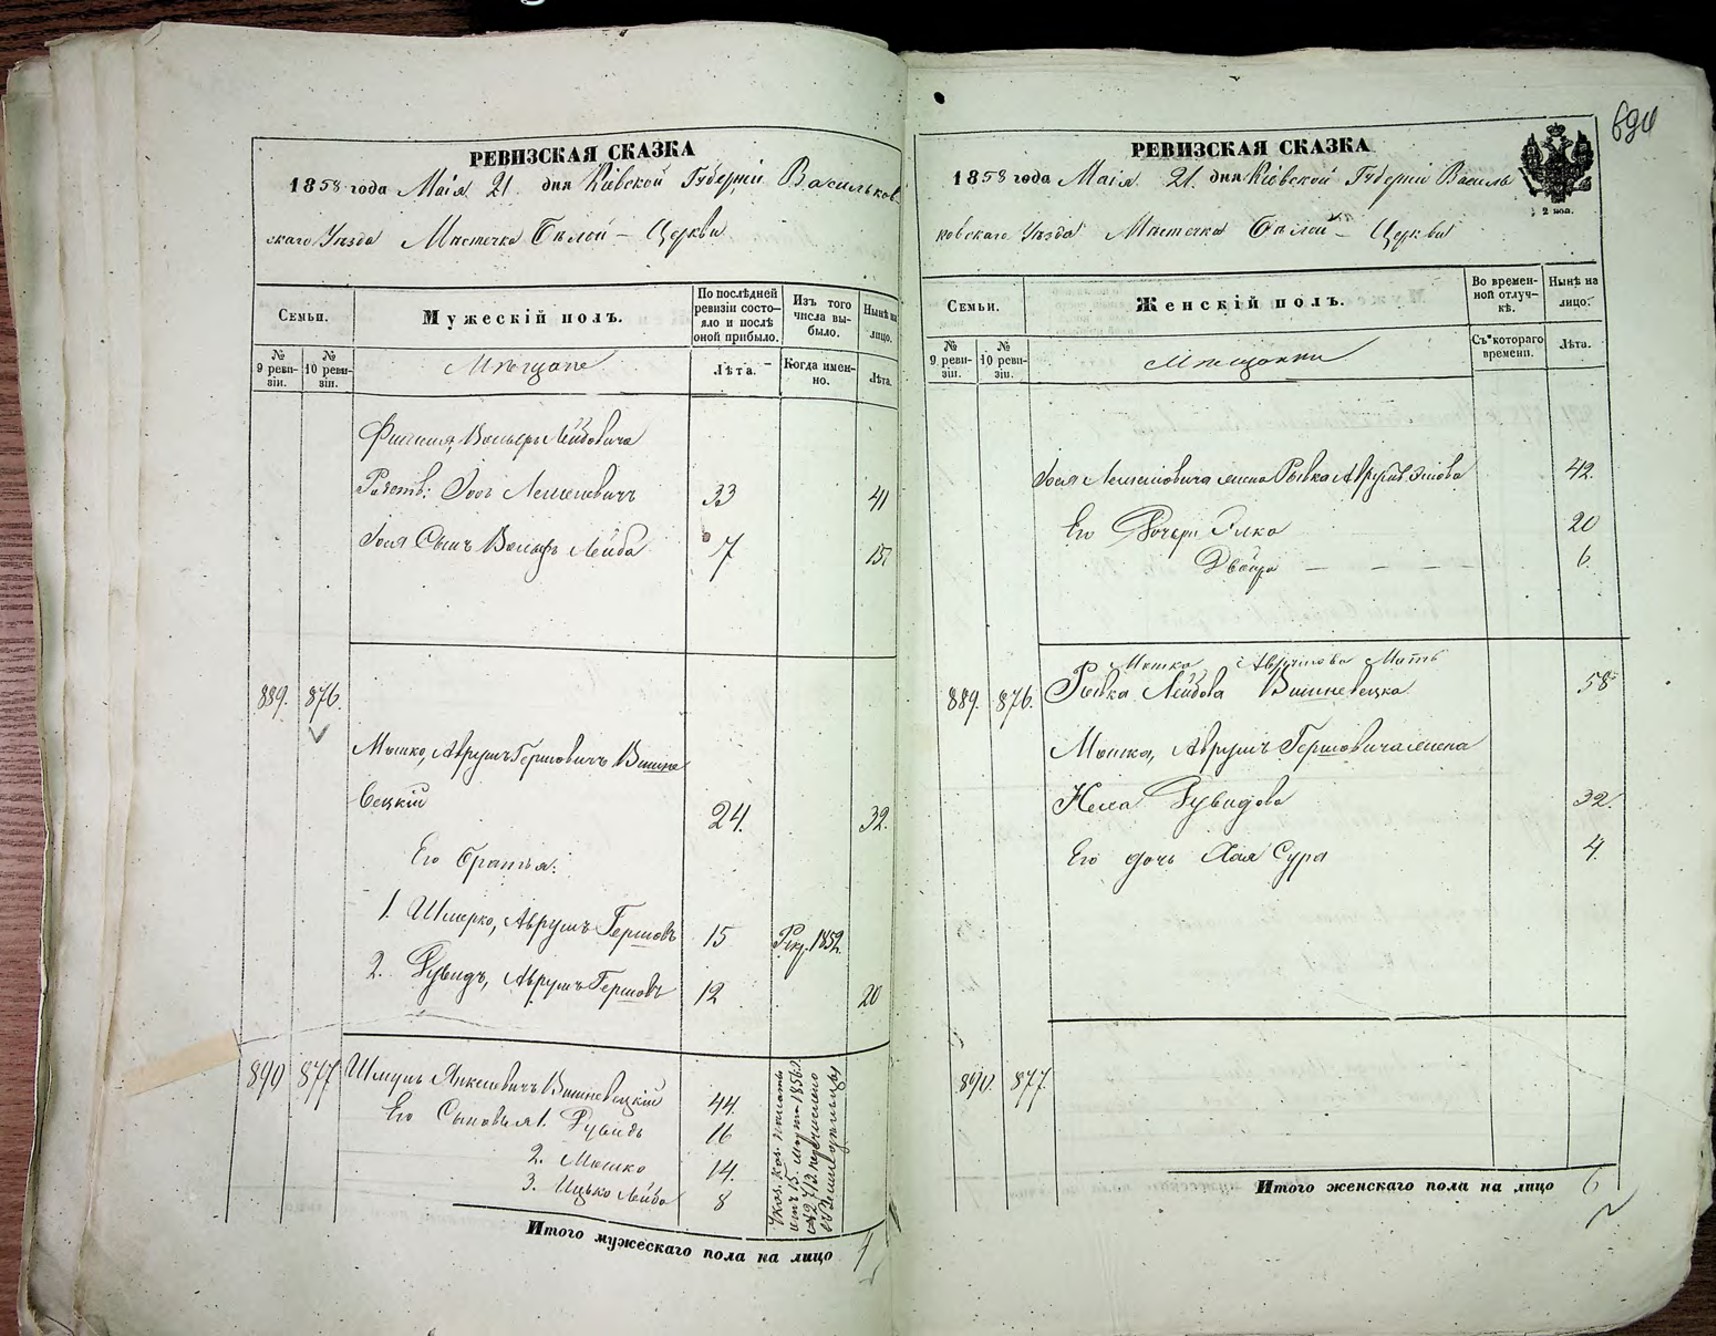 690
РЕВИЗСКАЯ СКАЗКА
1858 года Маія 21. дня Кіевской Губерніи Васильков-
скаго Уѣзда Мѣстечка Бѣлой – Церкви
Семьи.
Мужескій полъ.
По послѣдней ревизіи состо-
яло и послѣ
оной прибыло.
Изъ того
числа вы-
было.
Нынѣ на
лицо.
№
9 реви-
зіи.
№
10 реви-
зіи.
Мѣщане
Лѣта.
Когда имен-
но.
Лѣта.
Вольфъ Лейбовича
Іось 33 41
Сынъ Вольфъ Лейба 7 15
889. 876.
Мошко, Аврумъ Гершовичъ Вишне
вецкій 24. 32.
Его братья:
1. Шмерко, Аврумъ Гершовъ 15 Рекр. 1852.
2. Дувидъ, Аврумъ Гершовъ 12 20
890 877 Шмуль Янкелевичъ Вишневецкій 44.
Его Сыновья 1. Дувидъ 16
2. Мошко 14.
3. Ицько Лейба 8
Итого мужескаго пола на лицо
РЕВИЗСКАЯ СКАЗКА
1858 года Маія 21. дня Кіевской Губерніи Василь
ковскаго Уѣзда Мѣстечка Бѣлой – Церкви
Семьи.
Женскій полъ.
Во времен-
ной отлуч-
кѣ.
Нынѣ на
лицо.
№
9 реви-
зіи.
№
10 реви-
зіи.
Мѣщанки
Съ котораго
времени.
Лѣта.
жена Рывка 42.
Его Дочери Элка 20
Двойра 6.
Мошка Аврумова Мать
889. 876. Рывка Лейбова Вишневецка 58
Мошка, Аврумъ Гершовича жена
Дувидова 32.
Его дочь Хая Сура 4.
890. 877.
Итого женскаго пола на лицо 6